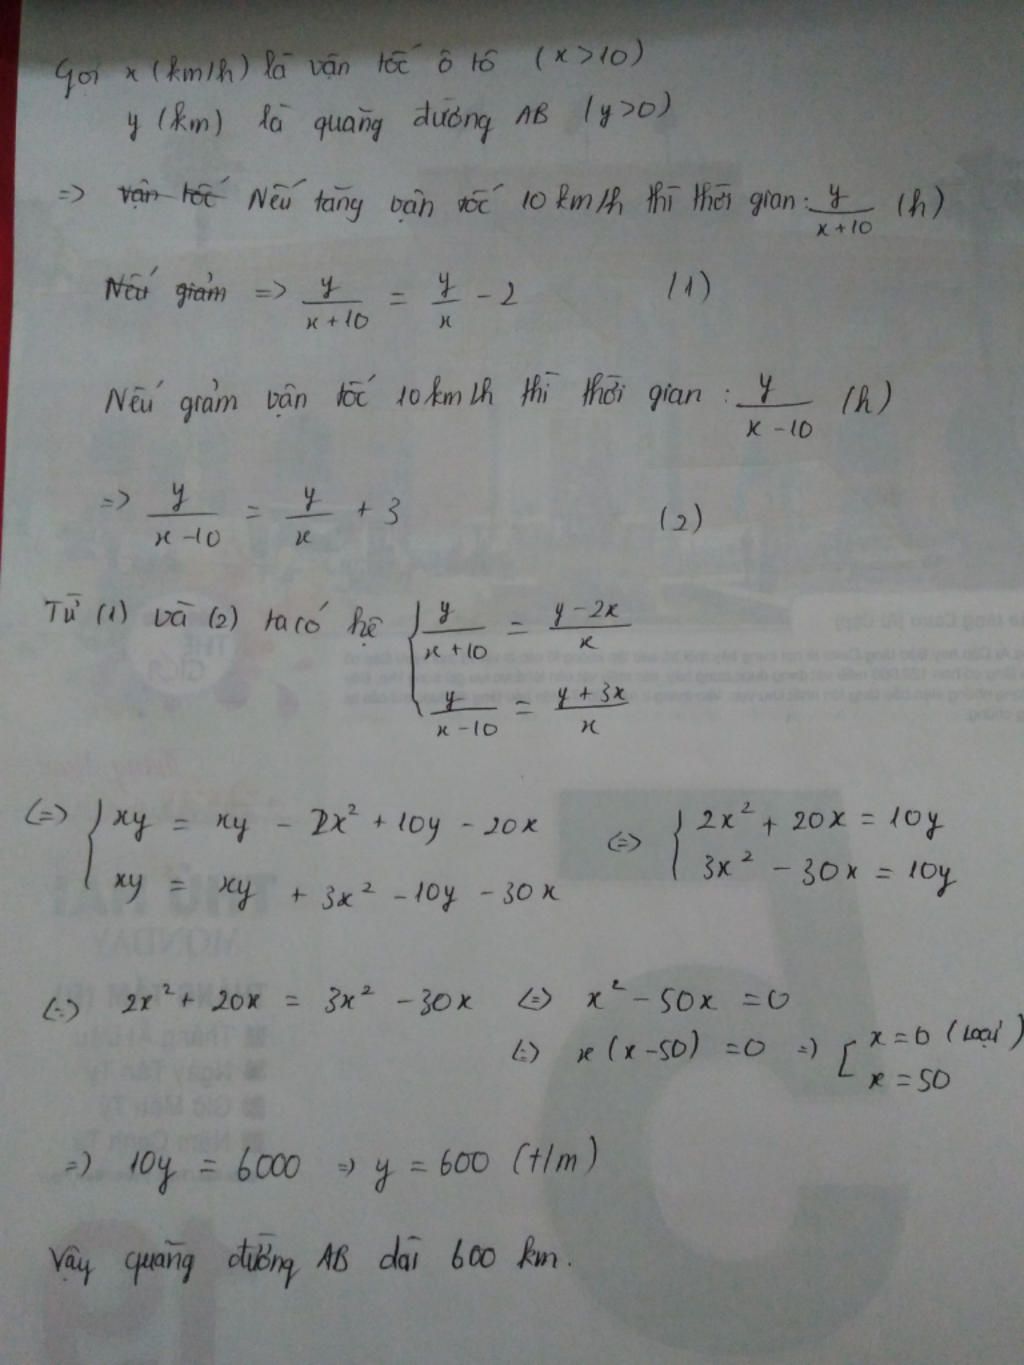 Gọi x (km/h) là vận tốc ô tô (x>10)
y (km) là quãng đường AB (y>0)
=> vận tốc Nếu tăng vận tốc 10 km/h thì thời gian: y/(x+10) (h)
Nếu giảm => y/(x+10) = y/x - 2 (1)
Nếu giảm vận tốc 10 km/h thì thời gian: y/(x-10) (h)
=> y/(x-10) = y/x + 3 (2)
Từ (1) và (2) ta có hệ { y/(x+10) = (y-2x)/x
y/(x-10) = (y+3x)/x
(=) { xy = xy - 2x² + 10y - 20x (=) { 2x² + 20x = 10y
xy = xy + 3x² - 10y - 30x 3x² - 30x = 10y
(=) 2x² + 20x = 3x² - 30x (=) x² - 50x = 0
(=) x(x-50) = 0 => [ x = 0 (loại)
x = 50
=> 10y = 6000 => y = 600 (t/m)
Vậy quãng đường AB dài 600 km.
THỨ HAI
MONDAY